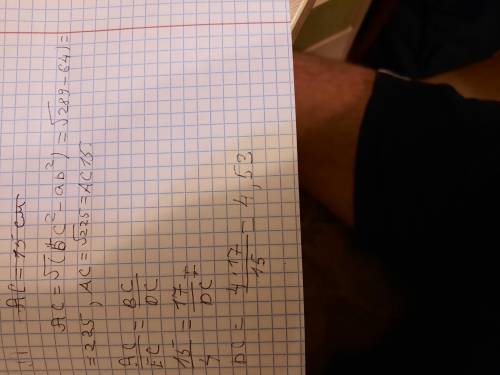 AC = 15 см
AC = √(BC² - ab²) = √(289 - 64) =
= 225, AC = √225 = AC 15
AC/EC = BC/DC
15/4 = 17/DC
DC = 4·17/15 = 4,53